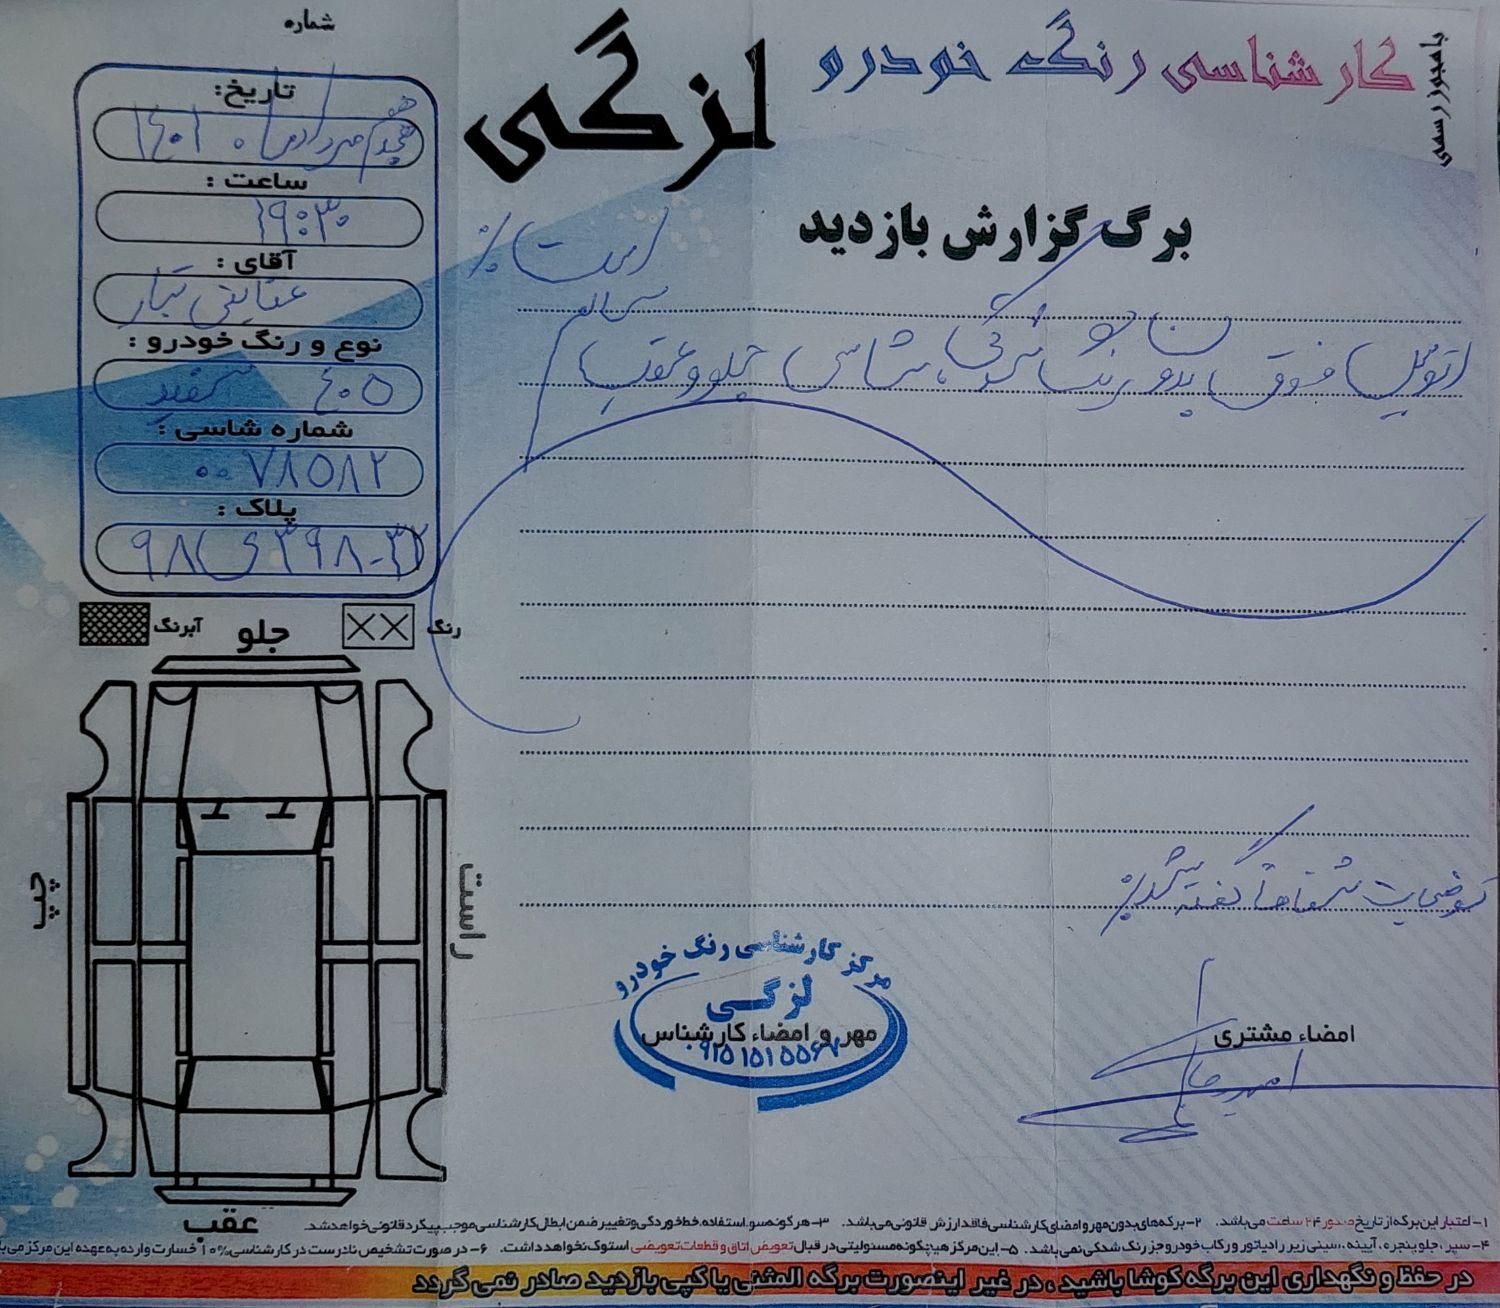 با مجوز رسمی
کارشناسی رنگ خودرو
لزگی
برگ گزارش بازدید
شماره
تاریخ:
هجدهم مرداد ماه ۱۴۰۱
ساعت :
۱۹:۳۰
آقای :
عنایتی تبار
نوع و رنگ خودرو :
۴۰۵ سفید
شماره شاسی :
۰۰۷۸۵۸۲
پلاک :
۹۸ی۳۹۸-۳۲
رنگ
آبرنگ
جلو
چپ
راست
عقب
اتومبیل فوق بدون رنگ شدگی، شاسی جلو و عقب سالم
است٪
توضیحات شفاهاً گفته شد٪
امضاء مشتری
مرکز کارشناسی رنگ خودرو
لزگی
مهر و امضاء کارشناس
۱- اعتبار این برگه از تاریخ صدور ۲۴ ساعت می‌باشد. ۲- برگه‌های بدون مهر و امضای کارشناسی فاقد ارزش قانونی می‌باشد. ۳- هر گونه سوء استفاده، خط خوردگی و تغییر ضمن ابطال کارشناسی موجب پیگرد قانونی خواهد شد.
۴- سپر، جلو پنجره، آیینه، سینی زیر رادیاتور و رکاب خودرو جز رنگ شدگی نمی‌باشد. ۵- این مرکز هیچگونه مسئولیتی در قبال تعویض اتاق و قطعات تعویضی استوک نخواهد داشت. ۶- در صورت تشخیص نادرست در کارشناسی ۱۰٪ خسارت وارده به عهده این مرکز می‌با
در حفظ و نگهداری این برگه کوشا باشید، در غیر اینصورت برگه المثنی یا کپی بازدید صادر نمی گردد